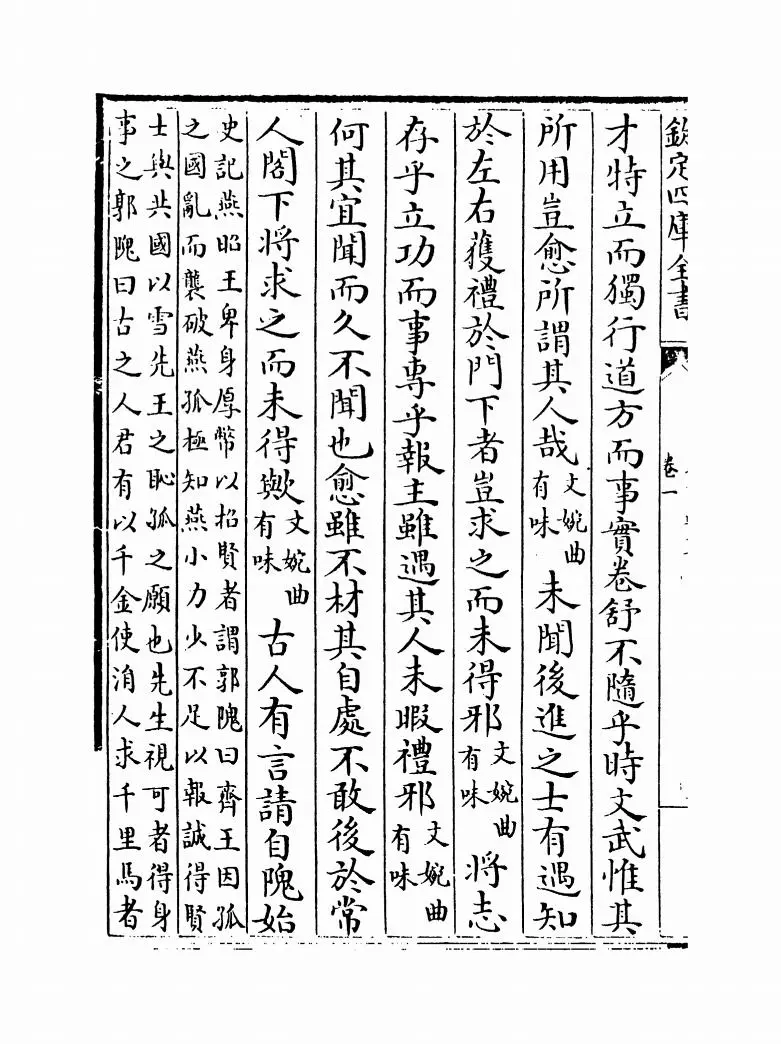 欽定四庫全書
卷一
才特立而獨行道方而事實卷舒不隨乎時文武惟其
所用豈愈所謂其人哉文婉曲有味未聞後進之士有遇知
於左右獲禮於門下者豈求之而未得邪文婉曲有味將志
存乎立功而事專乎報主雖遇其人未暇禮邪文婉曲有味
何其宜聞而久不聞也愈雖不材其自處不敢後於常
人閣下將求之而未得歟文婉曲有味古人有言請自隗始
史記燕昭王卑身厚幣以招賢者謂郭隗曰齊王因孤
之國亂而襲破燕孤極知燕小力少不足以報誠得賢
士與共國以雪先王之恥孤之願也先生視可者得身
事之郭隗曰古之人君有以千金使涓人求千里馬者